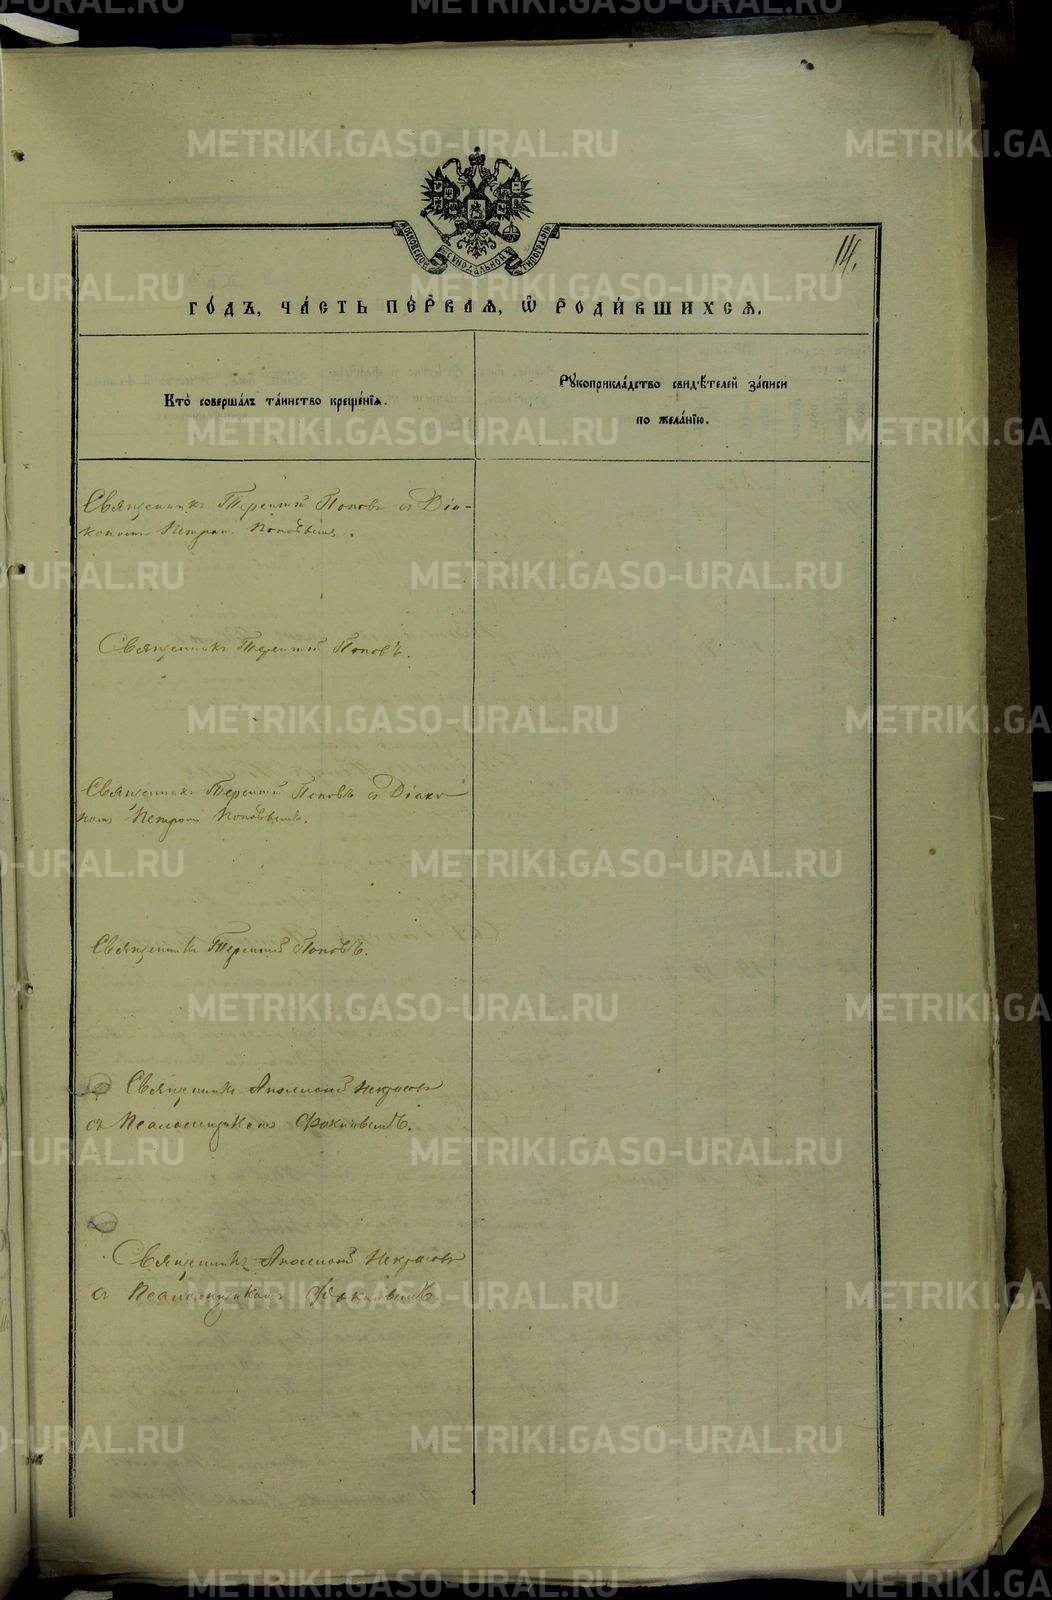 METRIKI.GASO-URAL.RU
МОСКОВСКОЙ СѴНОДАЛЬНОЙ ТИПОГРАФІИ
14.
ГО́ДЪ, ЧА́СТЬ ПЕ́РВАѦ, Ѡ҆ РОДИ́ВШИХСѦ.
Кто̀ соверша́лъ та́инство креще́нїѧ.
Рꙋкоприкла́дство свидѣ́телей за́писи
по жела́нїю.
Священникъ Терентій Поповъ съ Діа-
кономъ Петромъ Поповымъ.
Священникъ Терентій Поповъ.
Священникъ Терентій Поповъ съ Діако
номъ Петромъ Поповымъ.
Священникъ Терентій Поповъ.
Священникъ Аполлоній Некрасовъ
съ Псаломщикомъ Фокинымъ.
Священникъ Аполлоній Некрасовъ
съ Псаломщикомъ